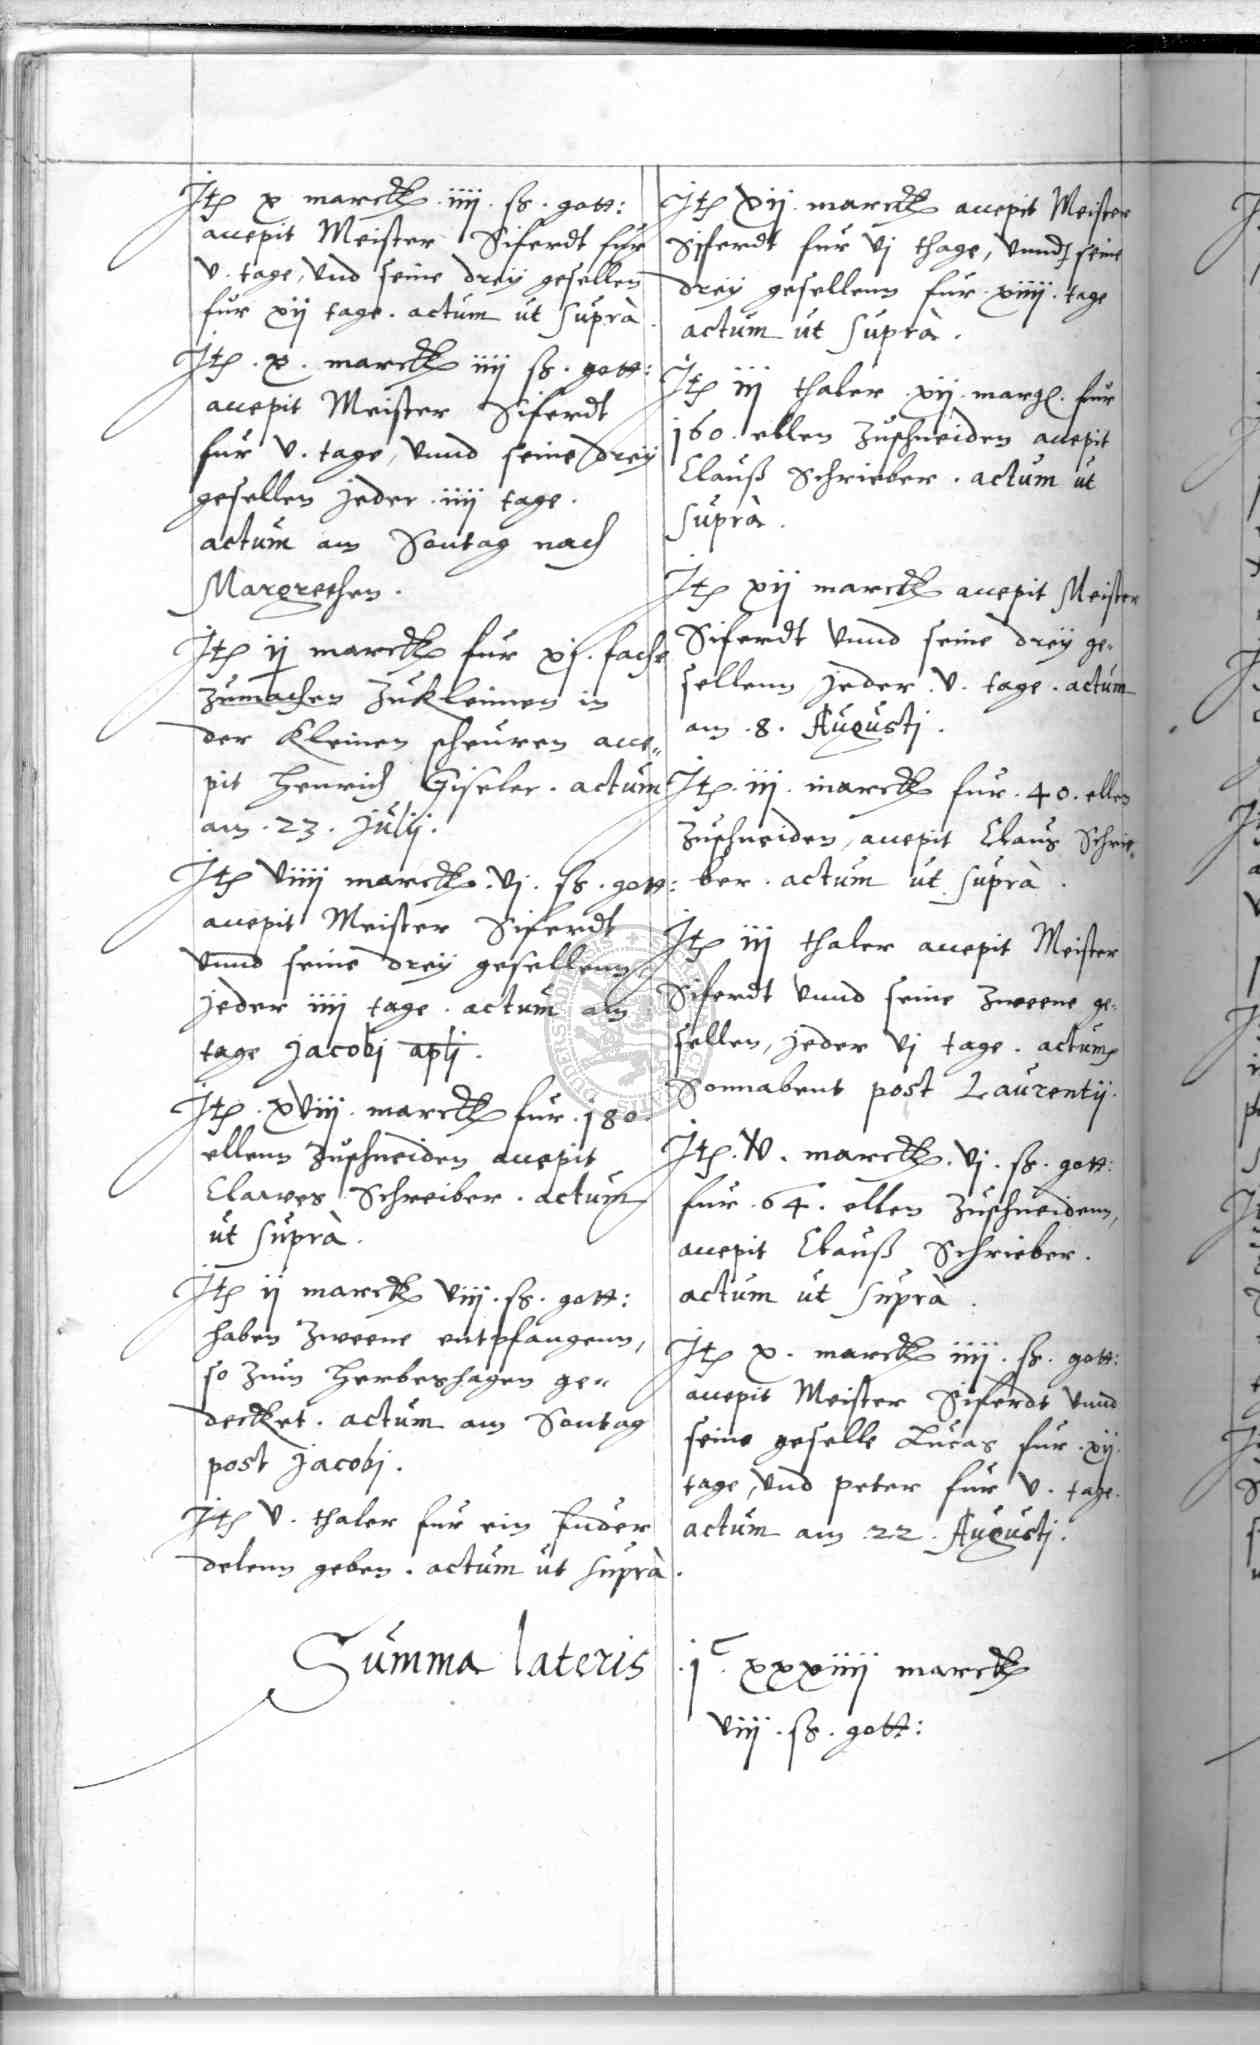 Jt(em) x marck iiij. ß. gott:
accepit Meister Siferdt fur
v. tage, vnd seine dreÿ gesellen
fur xij tage. actum ut suprà
Jt(em) .x. marck iiij ß. gott:
accepit Meister Siferdt
fur v. tage, vnnd seine dreÿ
gesellen jeder .iiij tage.
actum am Sontag nach
Margrethen.
Jt(em) ij marck fur xj. fache
zumachen zukleimen in
der kleinen scheuren acce=
pit Henrich Giseler. actum
am .23. julij.
Jt(em) viiij marck. vj. ß. gott:
accepit Meister Siferdt
vnnd seine dreÿ gesellenn
jeder iiij tage. actum am
tage jacobj aplj.
Jt(em) .xviij. marck fur .180.
ellenn zuschneiden accepit
Clawes Schreiber. actum
ut suprà.
Jt(em) ij marck viij. ß. gott:
haben zweene entpfangenn,
so zum Herbeshagen ge=
decket. actum am Sontag
post jacobj.
Jt(em) v. thaler fur ein fuder
delenn geben. actum ut suprà.
Jt(em) xij. marck accepit Meister
Siferdt fur vj thage, vnnd seine
dreÿ gesellenn fur .xiiij. tage
actum ut suprà.
Jt(em) iij thaler .xij. marg. fur
160. ellen zuschneiden accepit
Clauß Schrieber. actum ut
suprà.
Jt(em) xij marck accepit Meister
Siferdt vnnd seine dreÿ ge=
sellenn jeder .v. tage. actum
am .8. Augustj.
Jt(em). iij. marck fur .40. ellen
zuschneiden, accepit Claus Schrie=
ber. actum ut suprà.
Jt(em) iij thaler accepit Meister
Siferdt vnnd seine zweene ge=
sellen, jeder vj tage. actum
Sonnabent post Laurentij.
Jt(em). marck. vj. ß. gott:
fur .64. ellen zuschneidenn,
accepit Clauß Schrieber.
actum ut suprà.
Jt(em) x. marck iiij. ß. gott:
accepit Meister Siferdt vnnd
seine geselle Lucas fur .xij.
tage, vnd peter fur v. tage.
actum am 22. Augustj.
Summa lateris .j c. xxxiiij marck
viij. ß. gott: